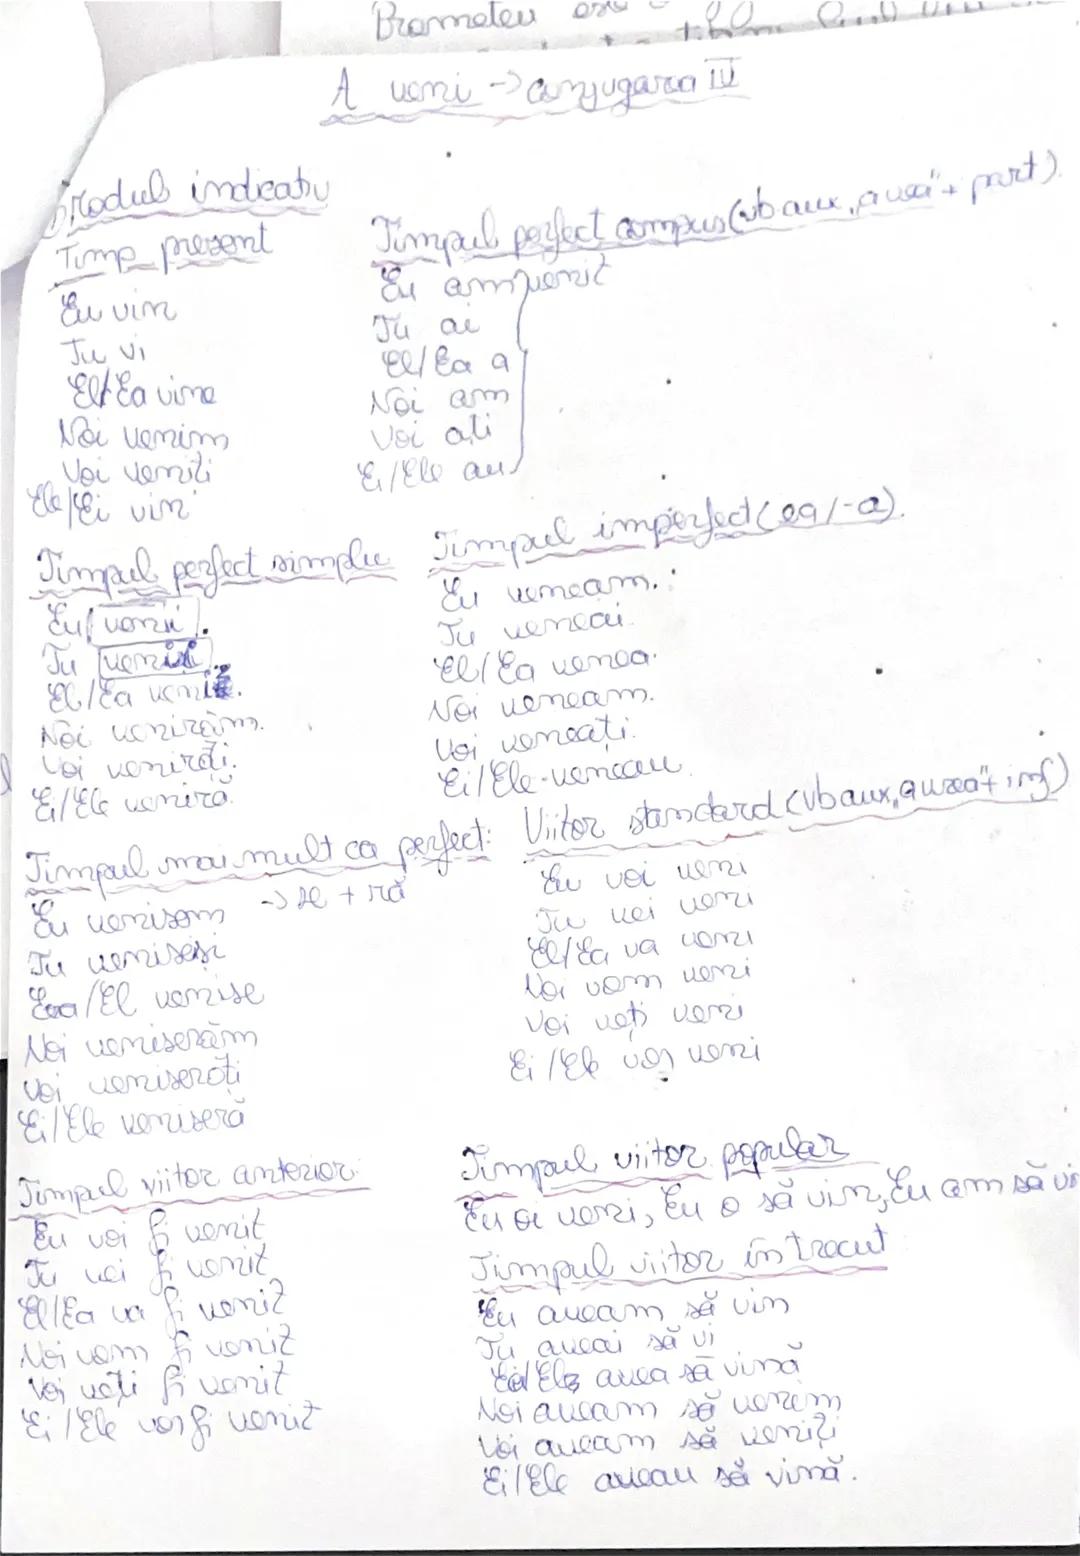 Prometeu este
A veni -> conjugarea IV
Modul indicativ
Timp prezent
Eu vin
Tu vi
El/Ea vine
Noi venim
Voi veniti
Ele/Ei vin
Timpul perfect compus (vb aux „avea" + part).
Eu am venit
Tu ai
El/Ea a
Noi am
Voi ati
Ei/Ele au
Timpul perfect simplu
Eu venii.
Tu veniși.
El/Ea veni.
Noi venirăm.
Voi venirăți.
Ei/Ele veniră.
Timpul imperfect (ea/-a).
Eu veneam.
Tu veneai.
El/Ea venea.
Noi veneam.
Voi veneați.
Ei/Ele-veneau.
Timpul mai mult ca perfect:
-> se + ră
Eu venisem
Tu veniseși
Ea/El venise
Noi veniserăm
Voi veniserăți
Ei/Ele veniseră
Viitor standard (vb aux „a vrea" + inf)
Eu voi veni
Tu vei veni
El/Ea va veni
Noi vom veni
Voi veți veni
Ei/Ele vor veni
Timpul viitor anterior:
Eu voi fi venit
Tu vei fi venit
El/Ea va fi venit
Noi vom fi venit
Voi veți fi venit
Ei/Ele vor fi venit
Timpul viitor popular
Eu oi veni, Eu o să vin, Eu am să vi
Timpul viitor în trecut
Eu aveam să vin
Tu aveai să vi
avea să vină
Noi aveam să venim
Voi aveam să veniți
Ei/Ele aveau să vină.